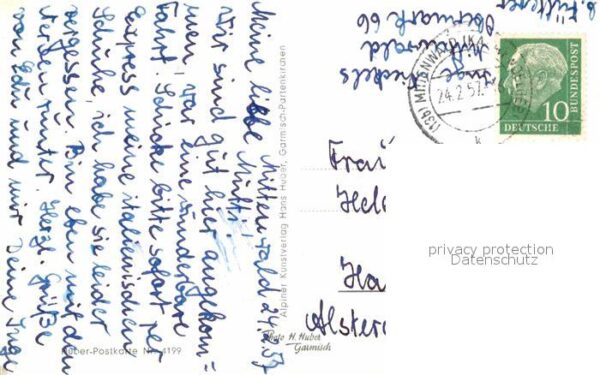 Mittenwald 24.2.57
Meine liebe Mutti!
Wir sind gut hier angekom=
men, war eine wunderbare
Fahrt. Schicke bitte sofort per
Express meine italienischen
Schuhe, ich habe sie leider
vergessen. Bin eben mit den
unter. Herzl. Grüße
von Edu und mir Deine Inge
Huber-Postkarte Nr. 4199
Alpiner Kunstverlag Hans Huber, Garmisch-Partenkirchen
Photo H. Huber
Garmisch
Inge
Mittenwald
Obermark 66
(13b) MITTENWALD
24.2.57
k
10
DEUTSCHE
BUNDESPOST
Frau
Hel
Ha
Alster
privacy protection
Datenschutz